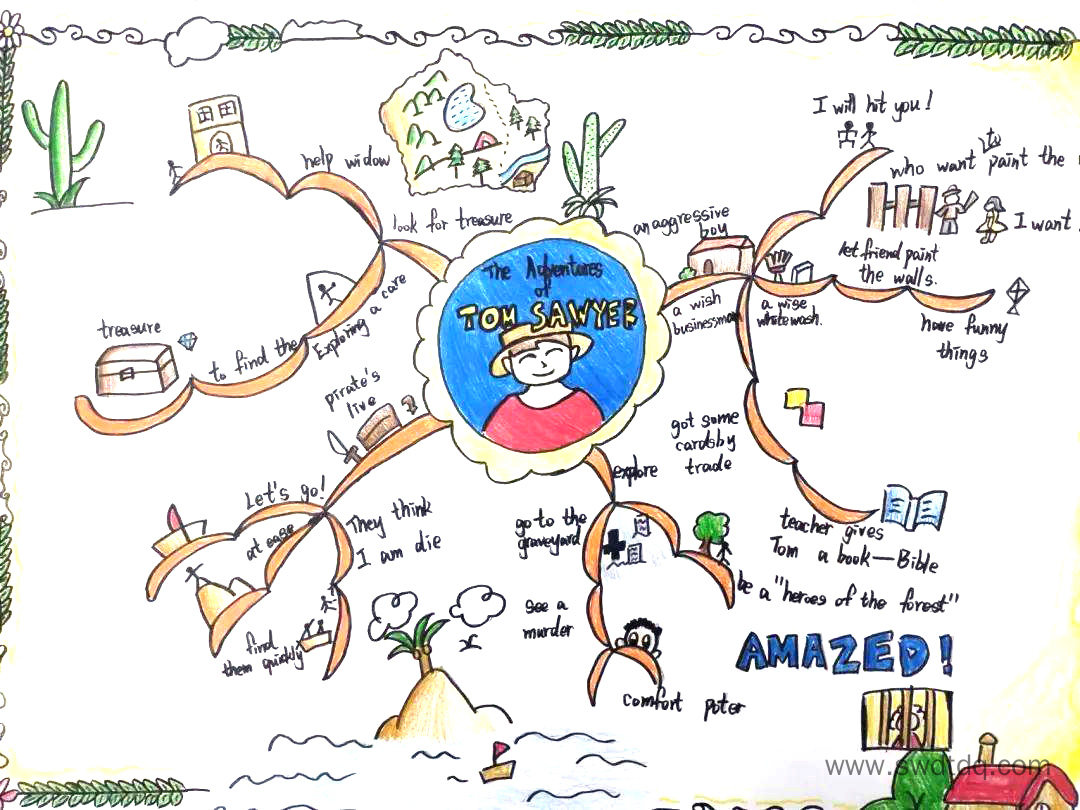 The Adventures
of
TOM SAWYER
an aggressive
boy
I will hit you!
who want to paint the
I want
let friend paint
the walls.
have funny
things
a wise
whitewash.
a wish
businessman
got some
cards by
trade
teacher gives
Tom a book—Bible
explore
be a "heroes of the forest"
go to the
graveyard
see a
murder
comfort poter
AMAZED!
pirate's
live
Let's go!
at ease
They think
I am die
find
them quickly
look for treasure
help widow
Exploring a care
to find the
treasure
www.swdtdq.com